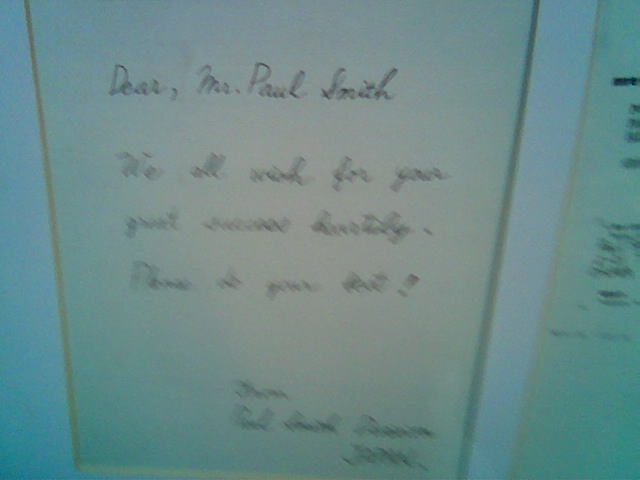 Dear, Mr. Paul Smith
We all wish for your
great success heartily.
Please do your best!!
From
Paul Smith Division
JAPAN.